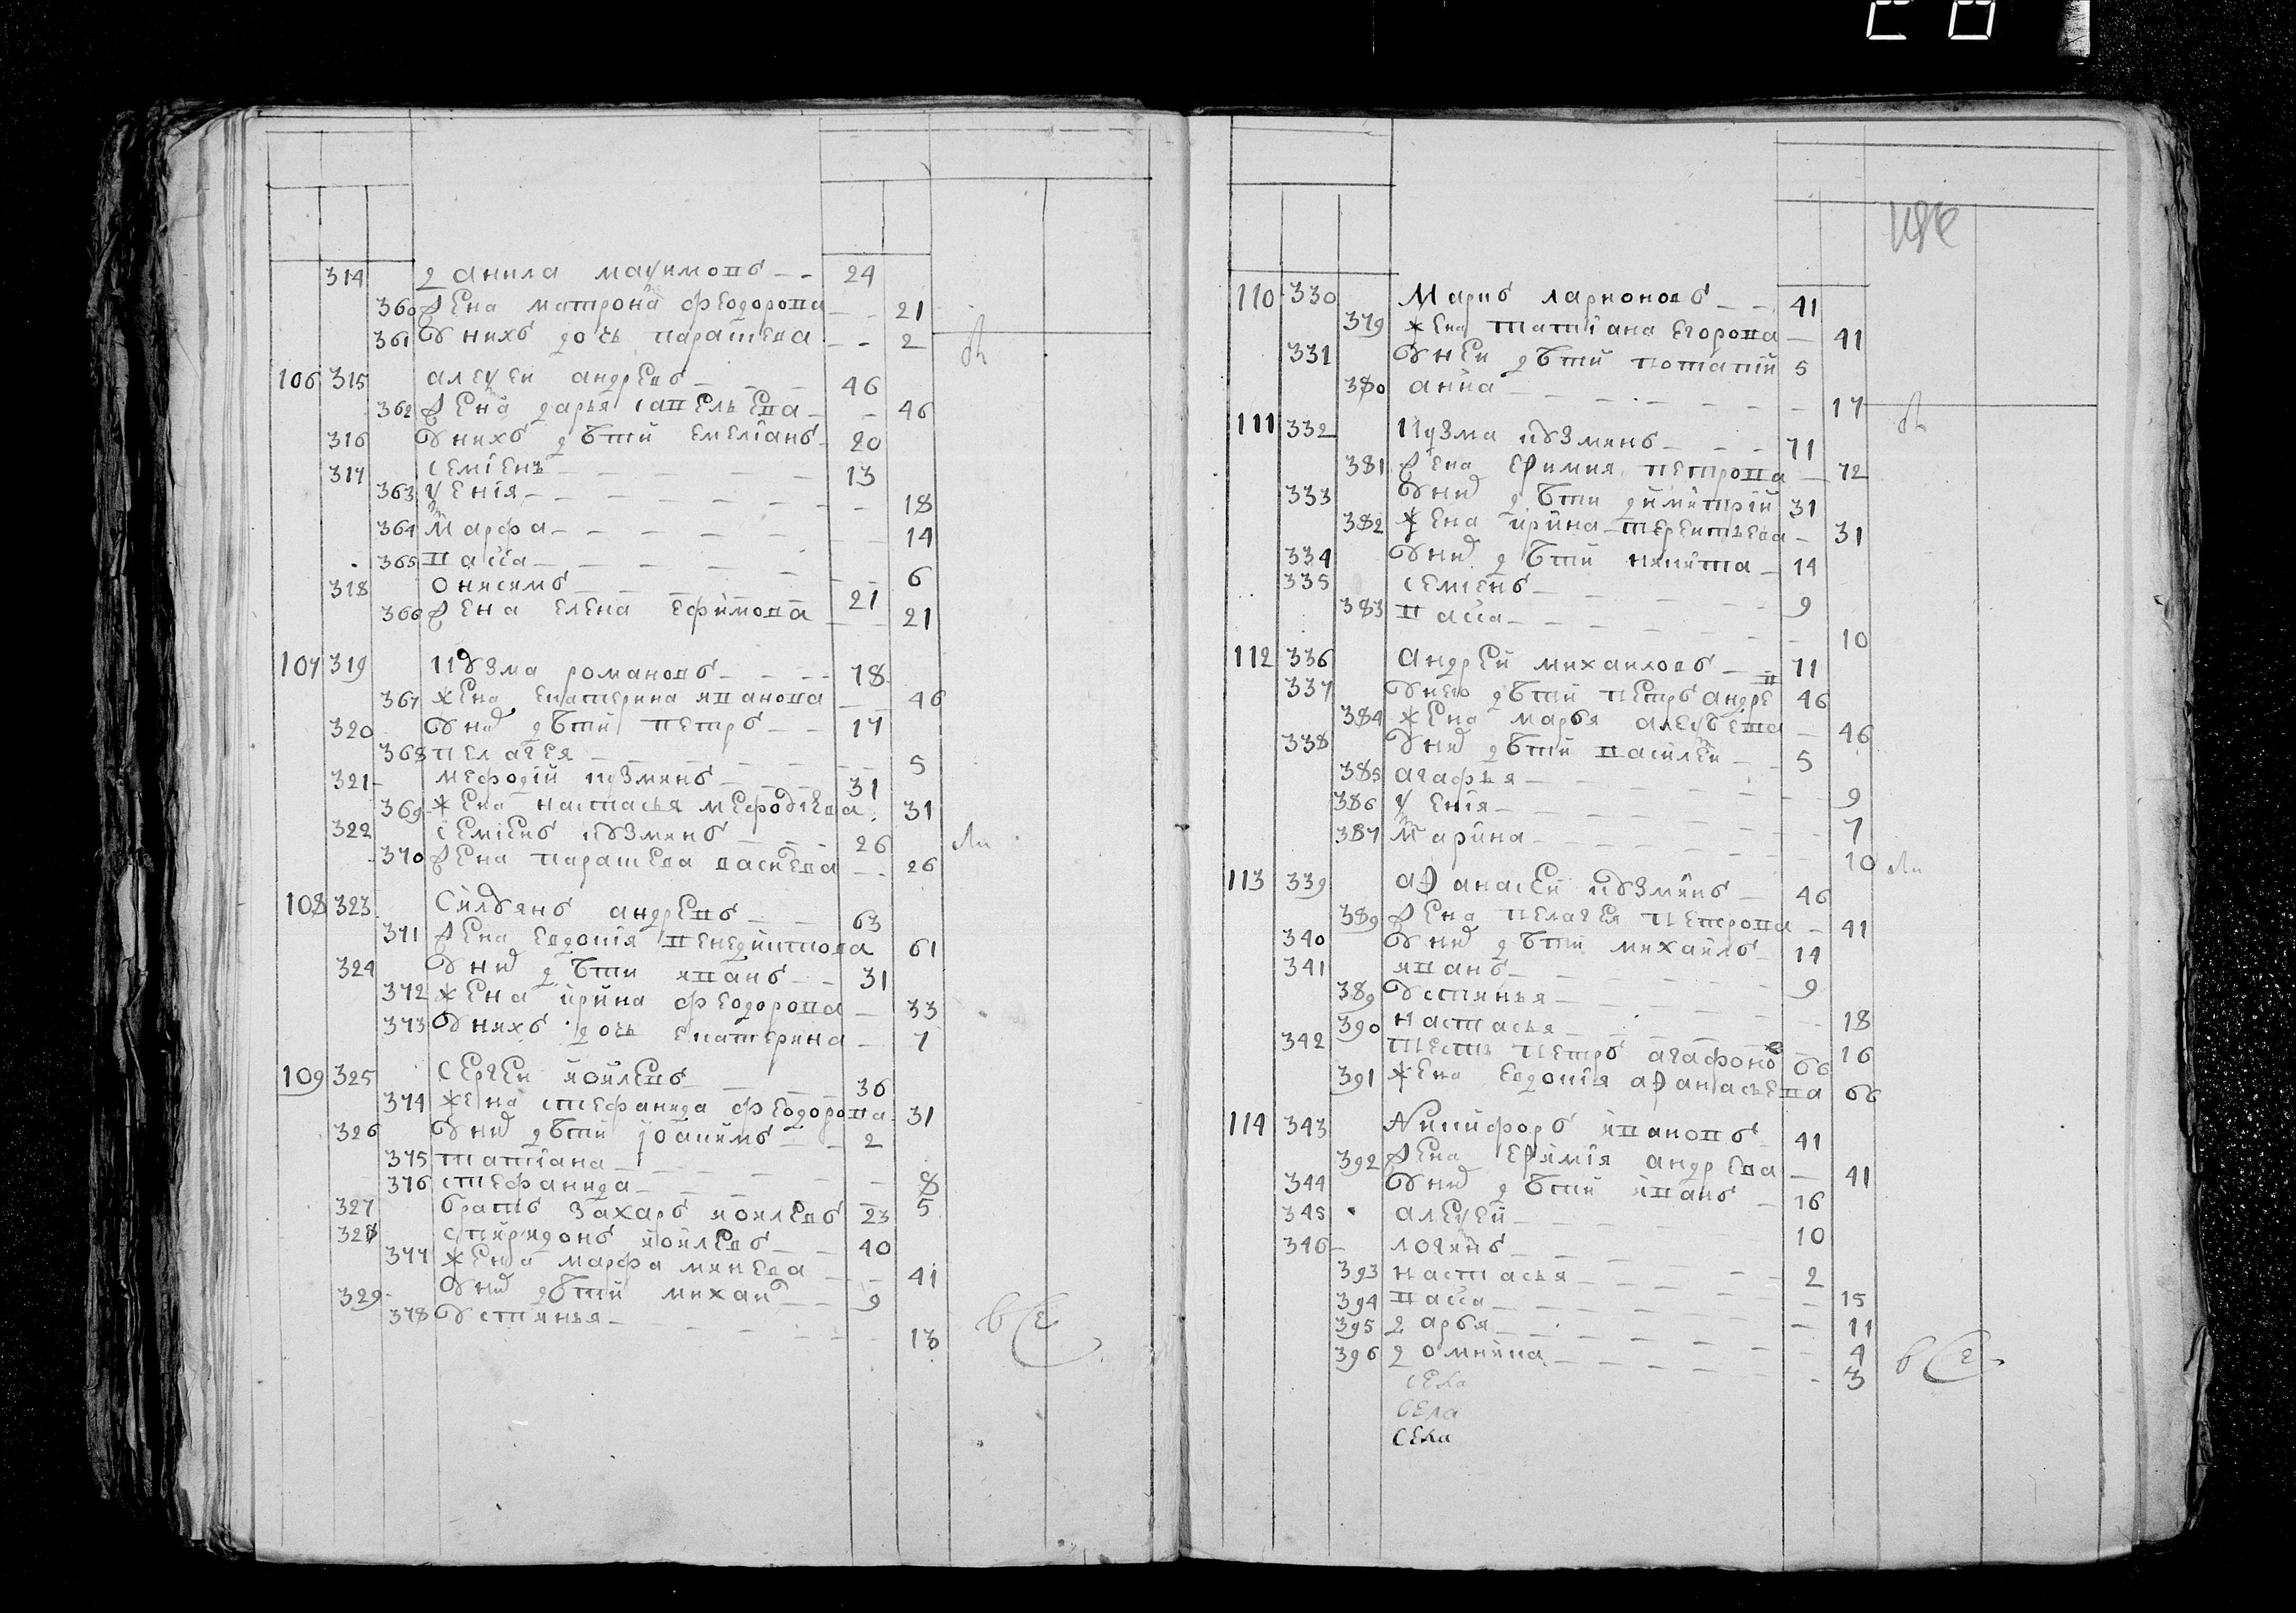 314 Данила маѯимовъ 24
360 жена матрона феодорова 21
361 Унихъ дочь параскева 2
106 315 алеѯеи андреевъ 46
362 жена дарья савельева 46
316 Унихъ дѣти емелїанъ 20
317 семіенъ 13
363 ѯенія 18
364 Марфа 14
365 васса 6
318 онисимъ 21
366 жена елена ефимова 21
107 319 Кузма романовъ 78
367 жена екатерина иванова 46
320 Унио дѣти петръ 17
368 пелагея 5
321 мефодій кузминъ 31
369 жена настасья мефодіева 31
322 семіенъ кузминъ 26
370 жена параскева васиева 26
108 323 Силуянъ андреевъ 63
371 жена евдокія венедиктова 61
324 Унио дѣти иванъ 31
372 жена ирина феодорова 33
373 Унихъ дочь екатерина 7
109 325 Сергеи иоилевъ 36
374 жена стефанида феодорова 31
326 Унио дѣти іоакимъ 2
375 татіана 8
376 стефанида 5
327 братъ захаръ иоилевъ 23
328 спиридонъ иоилевъ 40
377 жена марфа минеева 41
329 Унио дѣти михаи 9
378 Устинья 13
110 330 Маркъ ларионовъ 41
379 жена татіана егорова 41
331 Унеи дѣти потапий 5
380 анна 17
111 332 Кузма кузминъ 71
381 жена еѳимия петрова 72
333 Унио дѣти димитрій 31
382 жена ирина терентьева 31
334 Унио дѣти никита 14
335 семіенъ 9
383 васса 10
112 336 андрей михаиловъ 71
337 Унего дѣти петръ андре в 46
384 жена марья алеѯѣева 46
338 Унио дѣти василеи 5
385 агафья 9
386 ѯенія 7
387 Марина 10
113 339 аѳанасеи кузминъ 46
389 жена пелагея петрова 41
340 Унио дѣти михаилъ 14
341 иванъ 9
389 Устинья 18
390 настасья 16
342 тесть петръ агафоно 66
391 жена евдокія аѳанасьева 66
114 343 Никифоръ ивановъ 41
392 жена еѳимія андреева 41
344 Унио дѣти иванъ 16
345 алеѯей 10
346 логинъ 2
393 настасья 15
394 васса 11
395 дарья 4
396 домника 3
села
села
села